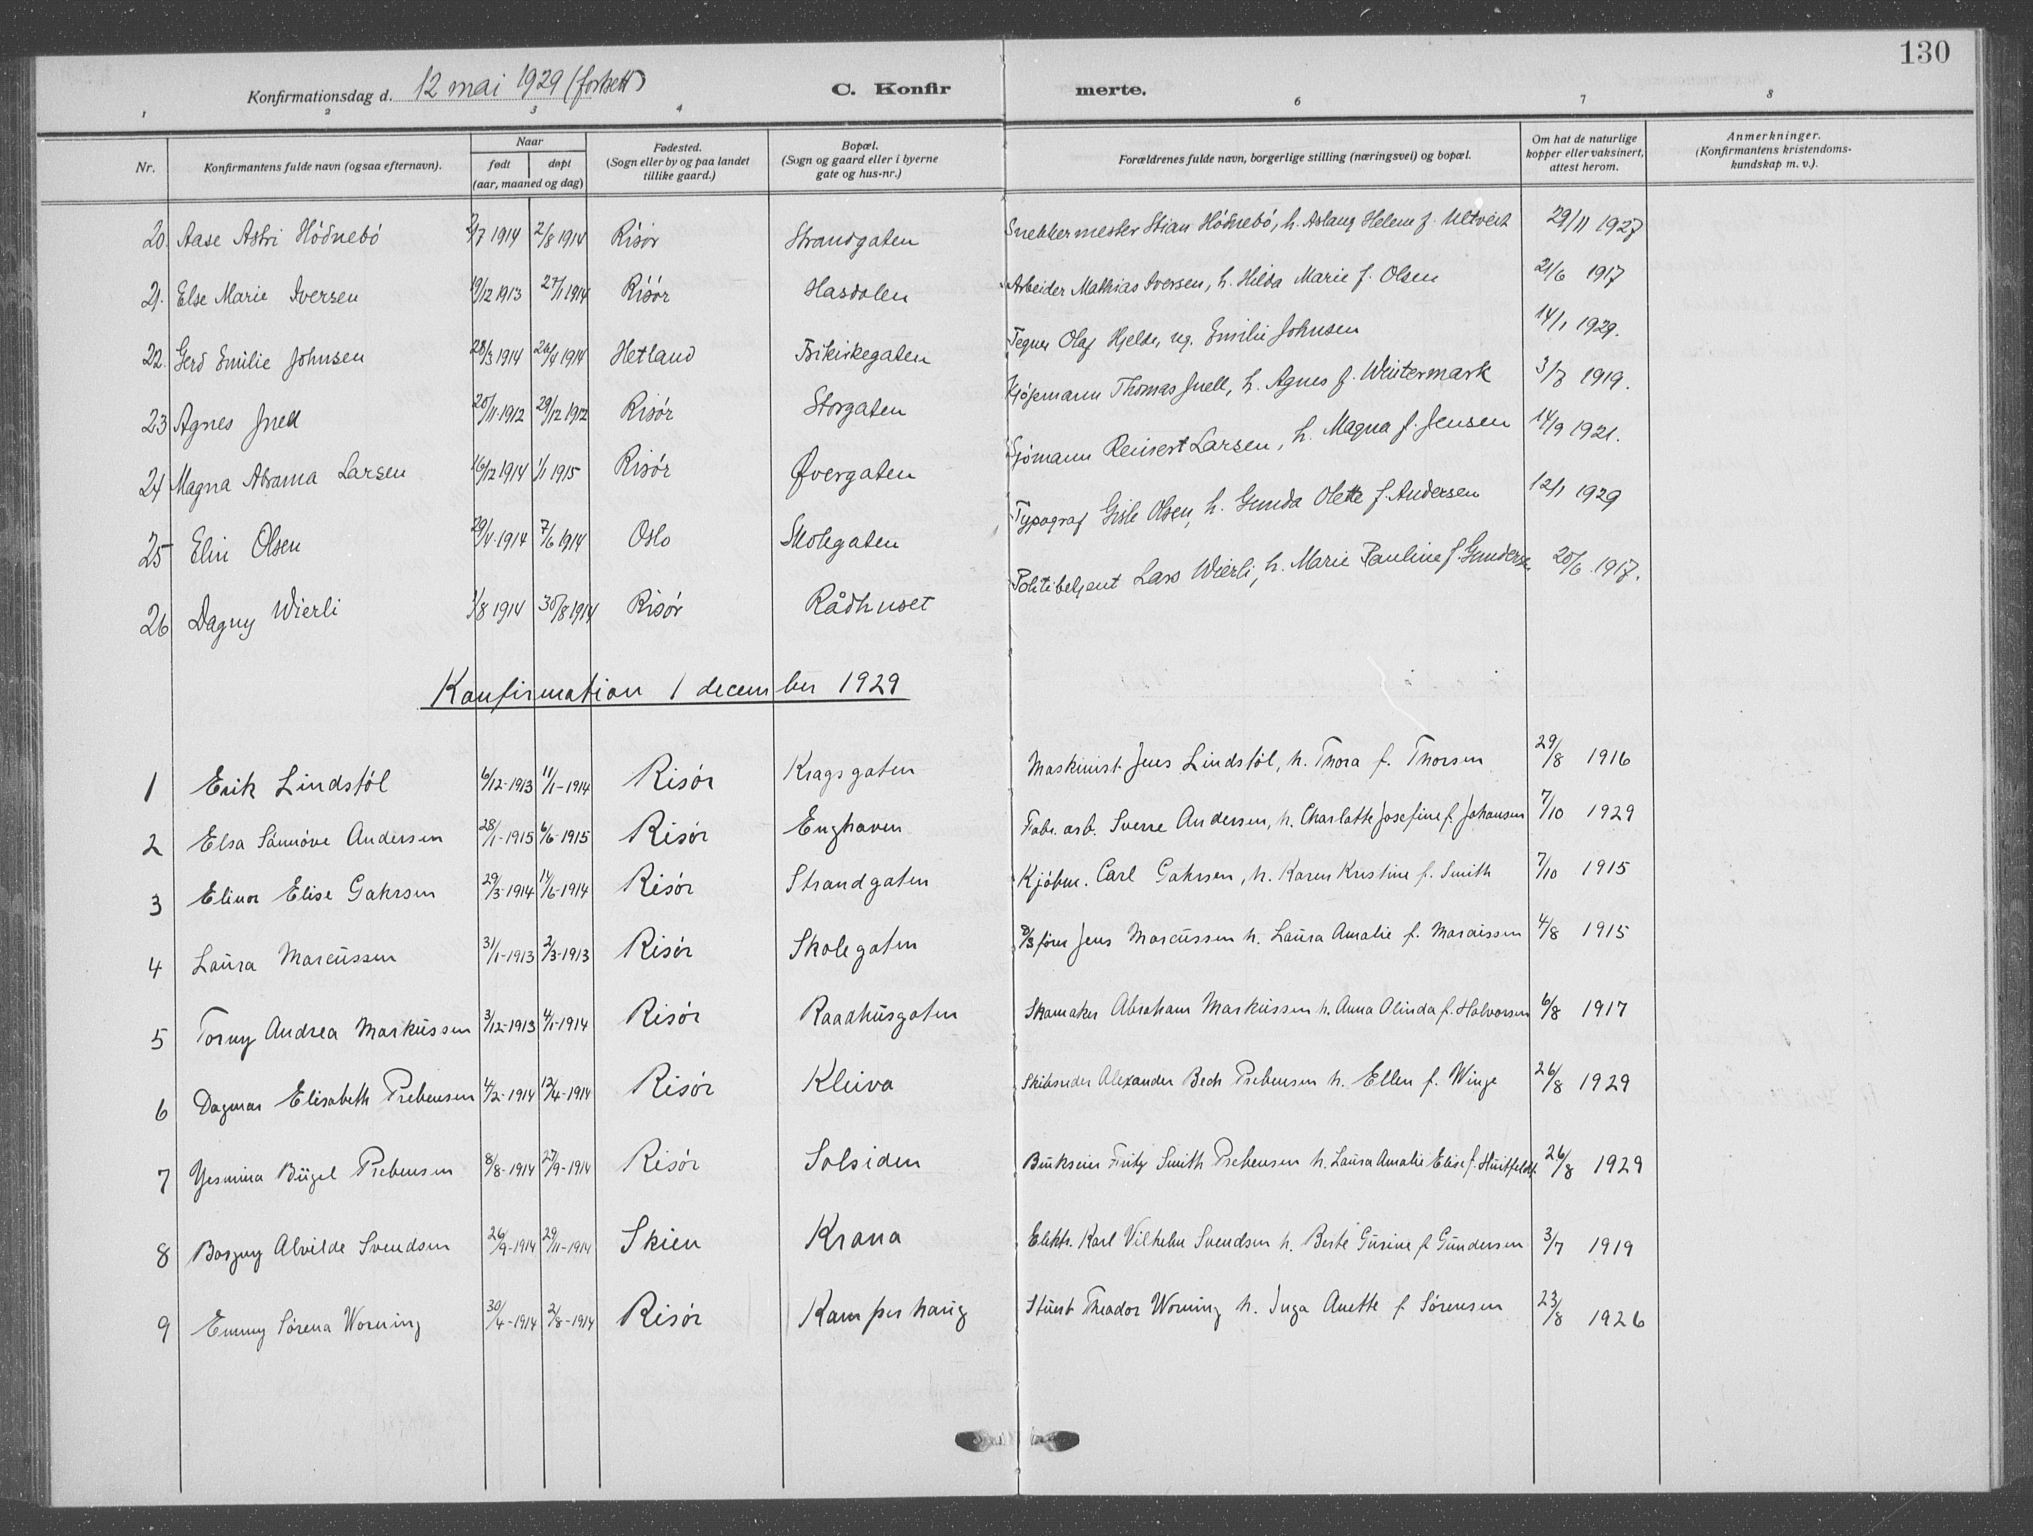 130
Konfirmationsdag d. 12 mai 1929 (fortsett)
C. Konfirmerte.
1 2 3 4 6 7 8
Nr. Konfirmantens fulde navn (ogsaa efternavn). Naar født døpt (aar, maaned og dag) Fødested. (Sogn eller by og paa landet tillike gaard.) Bopæl. (Sogn og gaard eller i byerne gate og hus-nr.) Forældrenes fulde navn, borgerlige stilling (næringsvei) og bopæl. Om hat de naturlige kopper eller vaksinert, attest herom. Anmerkninger. (Konfirmantens kristendomskundskap m. v.).
20. Aase Astri Hödnebö 2/7 1914 2/8 1914 Risör Strandgaten Snekkermester Stian Hödnebö, h. Aslaug Helene f. Ultveit 29/11 1927
21. Else Marie Iversen 19/12 1913 27/1 1914 Risör Hasdalen Arbeider Mathias Iversen, h. Hilda Marie f. Olsen 21/6 1917
22. Gerd Emilie Johnsen 28/3 1914 26/4 1914 Hetland Frikirkegaten Tegner Olaf Hjelde, ug. Emilie Johnsen 14/1 1929.
23 Agnes Juell 20/11 1912 29/12 1912 Risör Storgaten Kjøpmann Thomas Juell, h. Agnes f. Wintermark 3/7 1919.
24 Magna Abrama Larsen 16/12 1914 1/1 1915 Risör Øvergaten Sjömann Reinert Larsen, h. Magna f. Jensen 14/9 1921.
25 Elin Olsen 29/4-1914 7/6 1914 Oslo Skolegaten Typograf Gisle Olsen, h. Gunda Olette f. Andersen 12/1 1929
26 Dagny Wierli 1/8 1914 30/8 1914 Risör Rådhuset Politibetjent Lars Wierli, h. Marie Pauline f. Gundersen 20/6 1917.
Konfirmation 1 december 1929
1 Erik Lindstöl 6/12-1913 11/1-1914 Risör Kragsgaten Maskinist Jens Lindstöl, h. Thora f. Thorsen 29/8 1916
2 Elsa Sünnöve Andersen 28/1-1915 6/6-1915 Risör Enghaven Fabr. arb. Sverre Andersen, h. Charlotte Josefine f. Johansen 7/10 1929
3 Elinor Elise Gahrsen 29/3-1914 14/6-1914 Risör Strandgaten Kjöbm. Carl Gahrsen, h. Karen Kristine f. Smith 7/10 1915
4 Laura Marcussen 31/1-1913 2/3-1913 Risör Skolegaten D/Sförer Jens Marcussen h. Laura Amalie f. Marcussen 4/8 1915
5 Torny Andrea Markussen 3/12-1913 4/1-1914 Risör Raadhusgaten Skomaker Abraham Markussen h. Anna Olinda f. Halvorsen 6/8 1917
6 Dagmar Elisabeth Prebensen 4/2-1914 12/4-1914 Risör Kleiva Skibsreder Alexander Bech Prebensen h. Ellen f. Winge 26/8 1929
7 Yesmina Bügel Prebensen 8/8-1914 27/9-1914 Risör Solsiden Brukseier Fritz Smith Prebensen h. Laura Amalie Elise f. Huitfeldt 26/8 1929
8 Borgny Alvilde Svendsen 26/9-1914 29/11-1914 Skien Krana Elektr. Karl Vilhelm Svendsen h. Berte Gurine f. Gundersen 3/7 1919
9 Emmy Sörena Worning 30/4-1914 2/8-1914 Risör Kamperhaug Stuert Theodor Worning h. Inga Anette f. Sörensen 23/8 1926